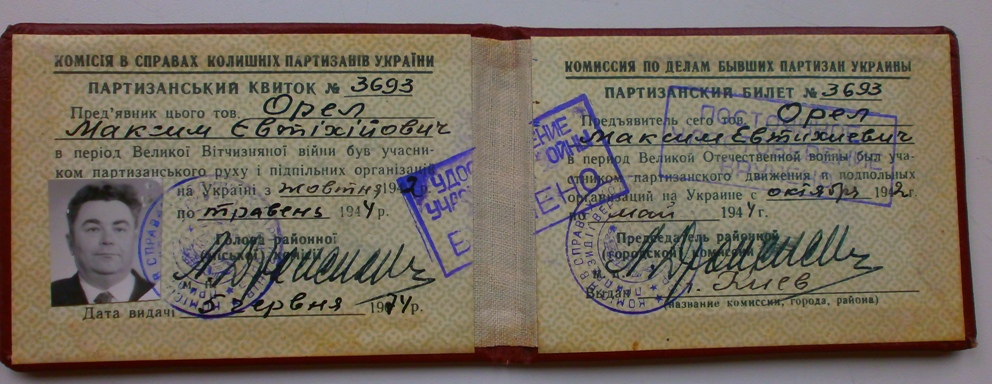 КОМІСІЯ В СПРАВАХ КОЛИШНІХ ПАРТИЗАНІВ УКРАЇНИ
ПАРТИЗАНСЬКИЙ КВИТОК № 3693
Пред'явник цього тов. Орел
Максим Євтіхійович
в період Великої Вітчизняної війни був учасни-
ком партизанського руху і підпільних організацій
на Україні з жовтня 1942
по травень 1944 р.
Голова районної
(міської) комісії
Дата видачі 5 червня 1974 р.
КОМИССИЯ ПО ДЕЛАМ БЫВШИХ ПАРТИЗАН УКРАИНЫ
ПАРТИЗАНСКИЙ БИЛЕТ № 3693
Предъявитель сего тов. Орел
Максим Евтихиевич
в период Великой Отечественной войны был уча-
стником партизанского движения и подпольных
организаций на Украине с октября 1942 г.
по май 1944 г.
Председатель районной
(городской) комиссии
М. п.
Выдан г. Киев
(название комиссии, города, района)